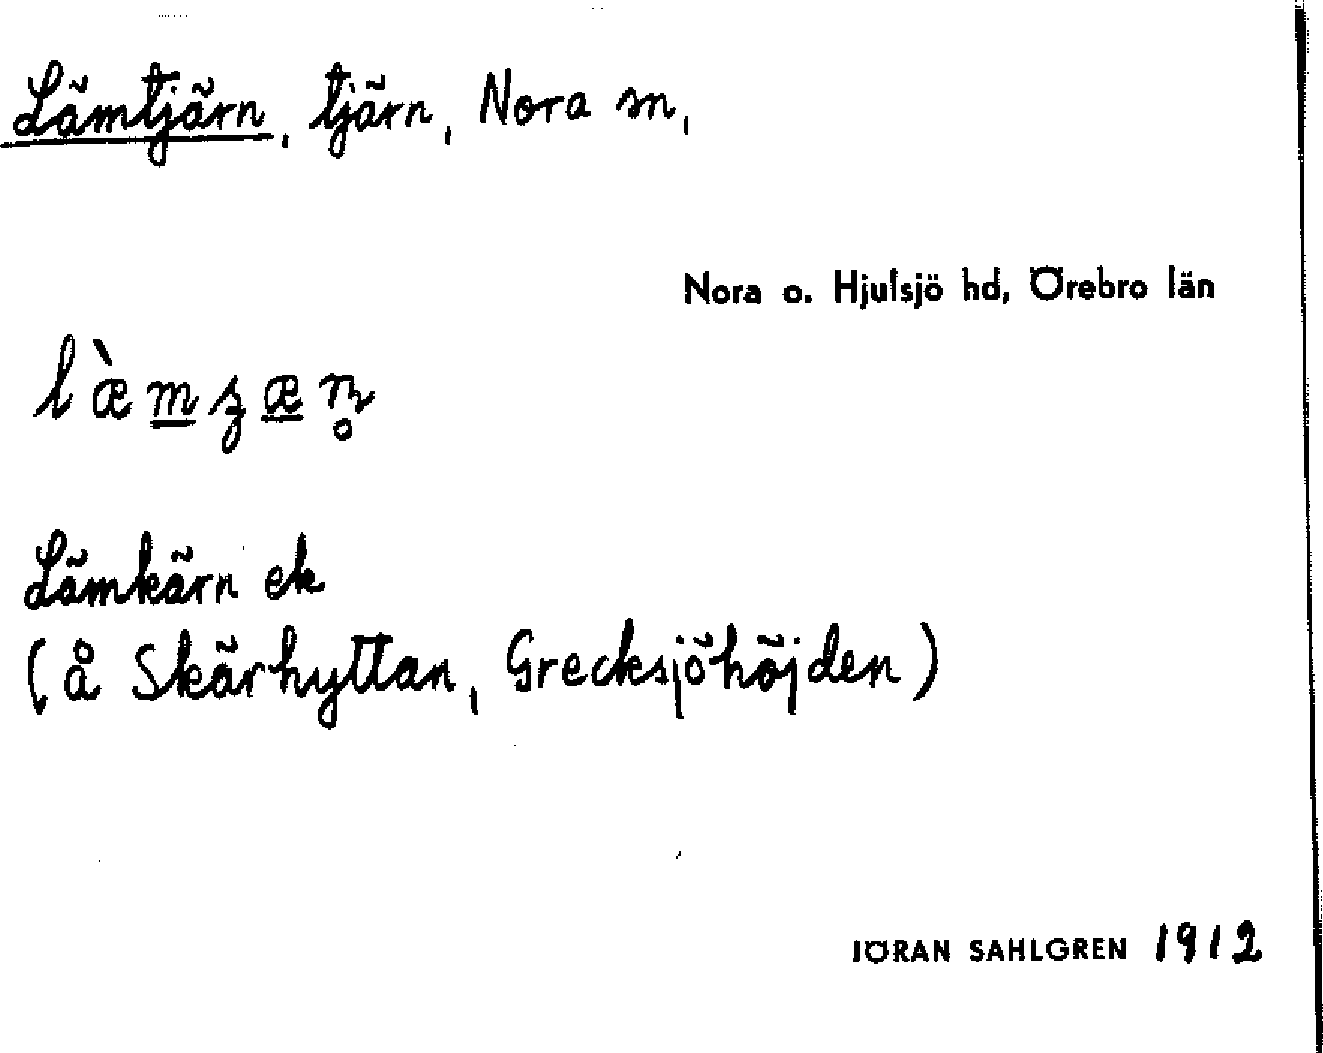 Lämtjärn, tjärn, Nora sn,
Nora o. Hjulsjö hd, Örebro län
Lämkärn ek
(å Skärhyttan, Grecksjöhöjden)
JÖRAN SAHLGREN 1912